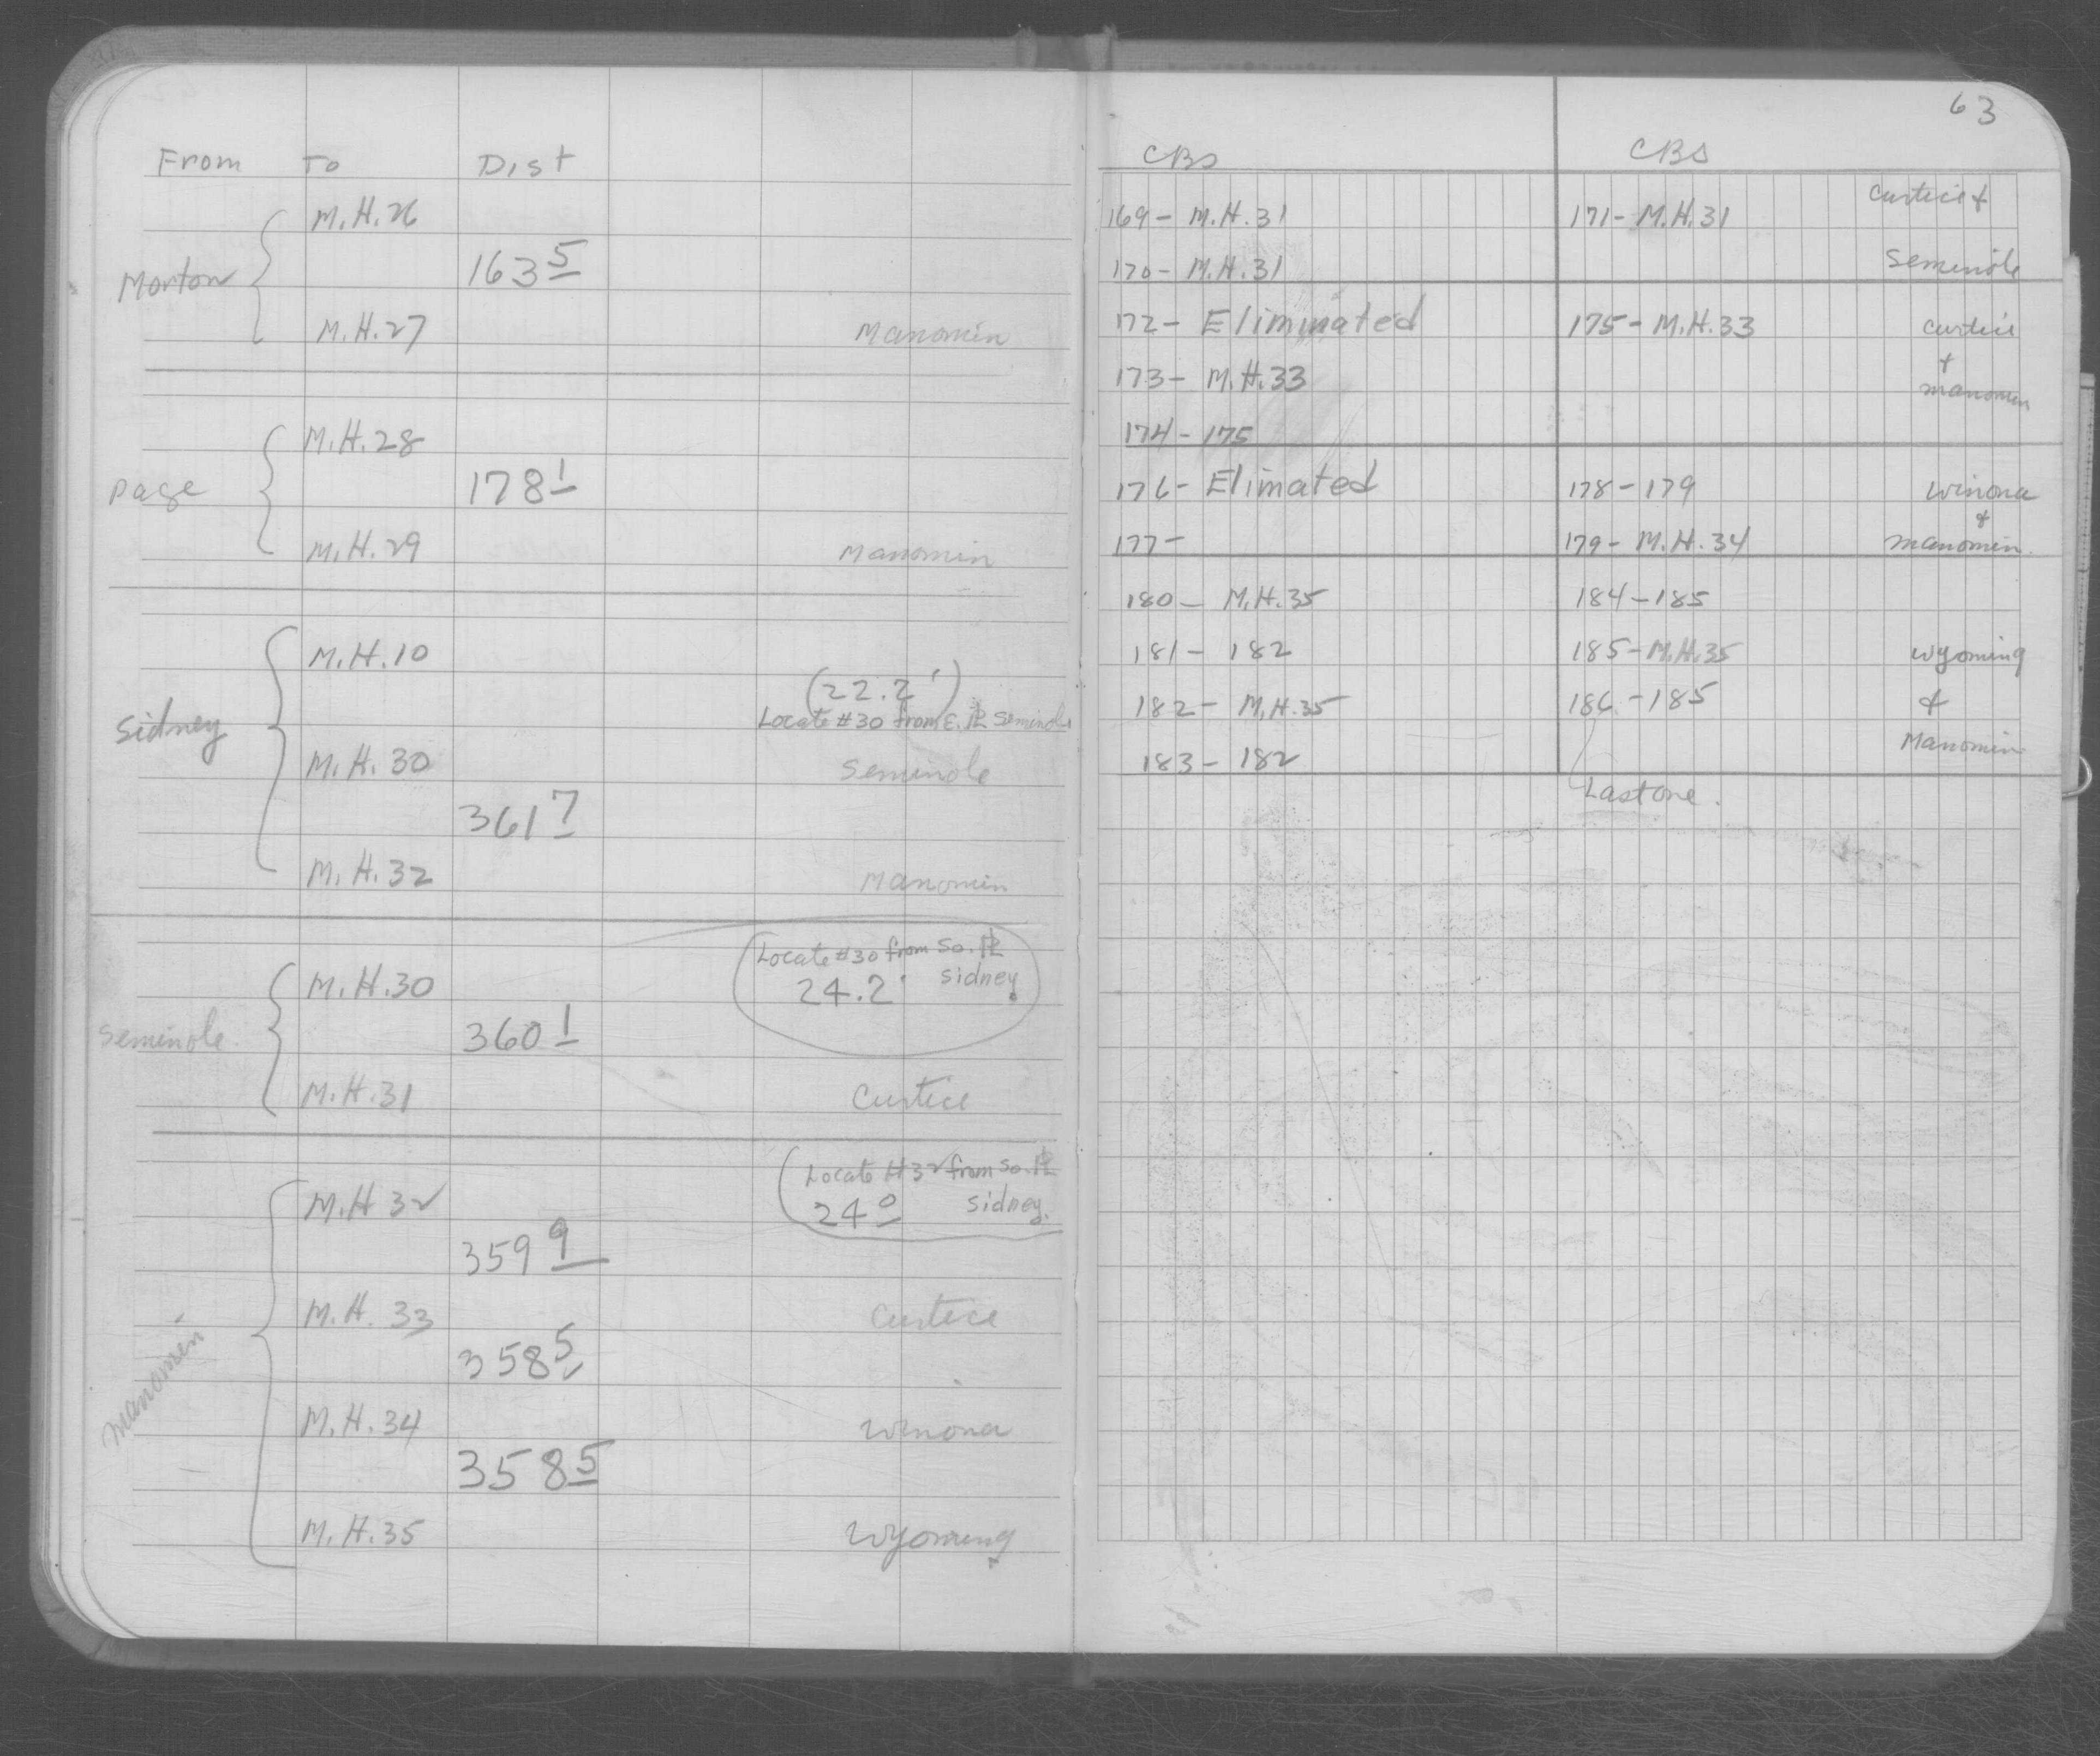 From To Dist
M.H.26
Morton 163 5
M.H.27 Manomin
M.H.28
Page 178 1
M.H.29 Manomin
M.H.10
(22.2')
Locate #30 from E. PL Seminole
Sidney
M.H. 30 Seminole
361 7
M.H. 32 Manomin
Locate #30 from So. PL
M.H.30 24.2' Sidney
Seminole 360 1
M.H.31 Curtice
Locate #32 from So. PL
M.H 32 24 0 Sidney.
359 9
M.H. 33 Curtice
Manomin 358 5
M.H.34 Winona
358 5
M.H.35 Wyoming
63
CBs CBs
169- M.H.31 171- M.H.31 Curtice +
170- M.H.31 Seminole
172- Eliminated 175- M.H.33 Curtice
173- M.H.33 + Manomin
174- 175
176- Elimated 178-179 Winona
&
177- 179- M.H.34 Manomin.
180- M.H.35 184-185
181- 182 185-M.H.35 Wyoming
182- M.H.35 186-185 &
183- 182 Manomin
Last one.